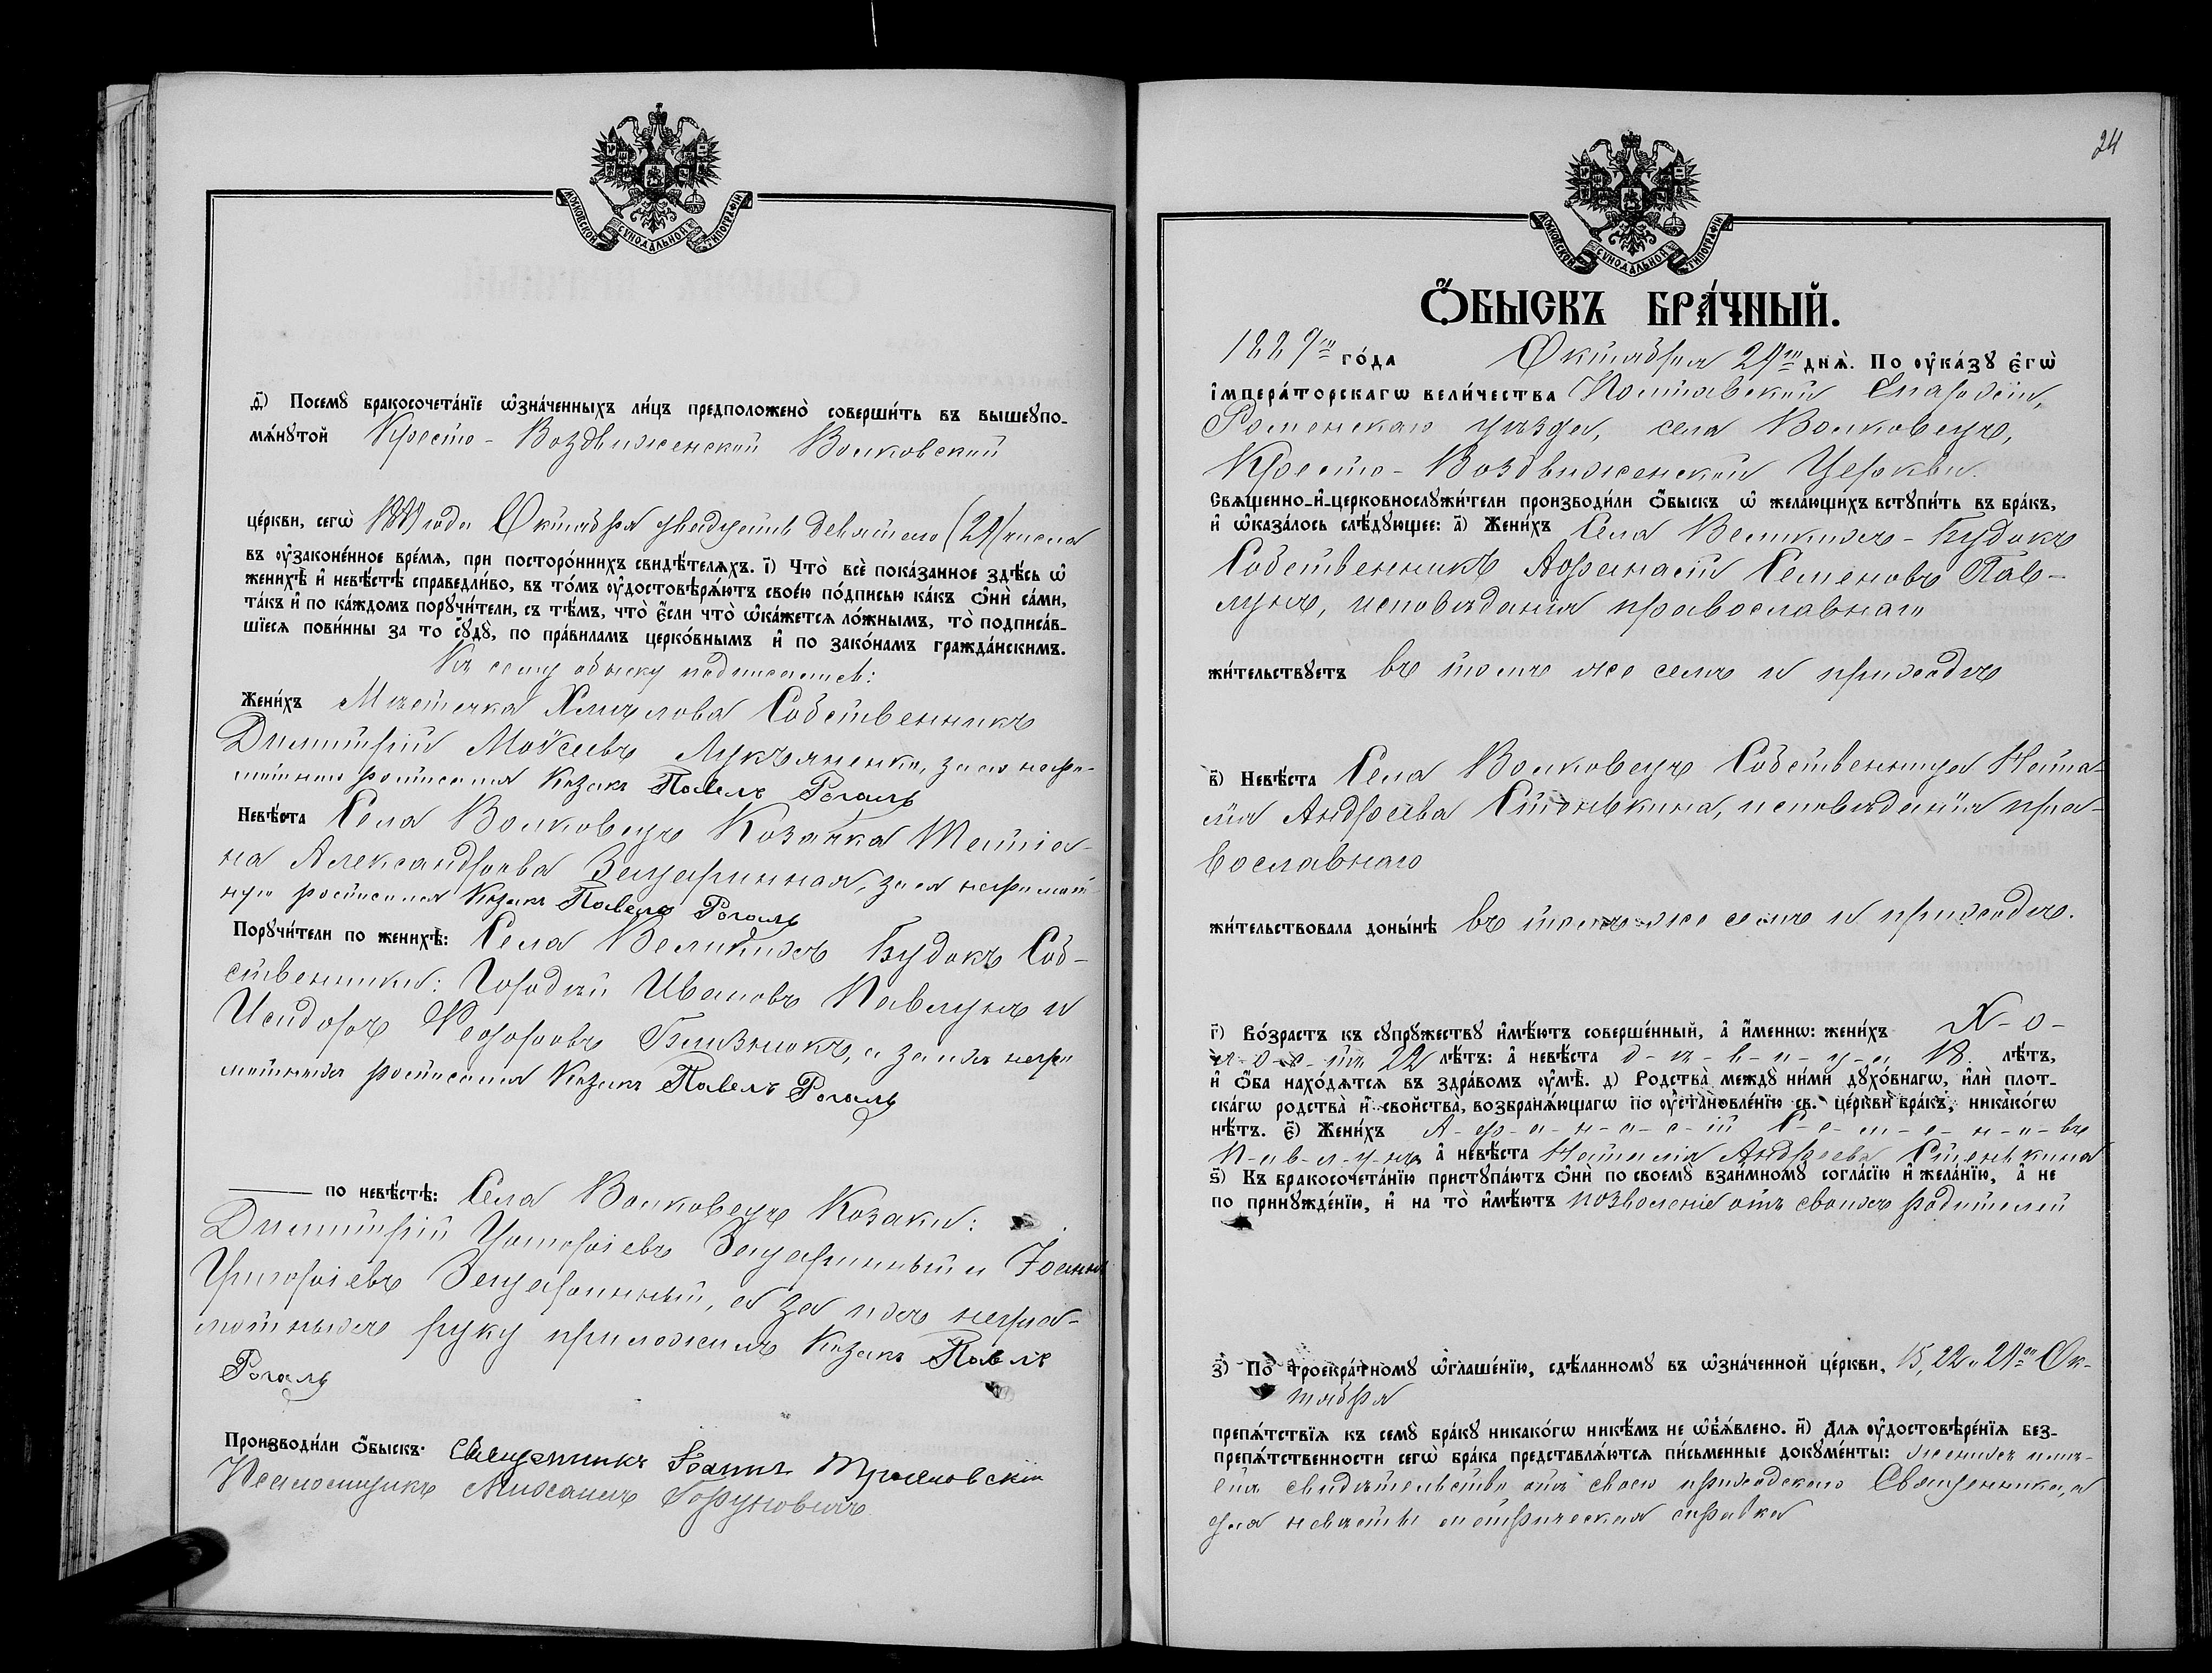 МОСКОВСКОЙ СѴНОДАЛЬНОЙ ТИПОГРАФІИ
ѳ҃) Посемꙋ бракосочета́нїе ѡ҆зна́ченныхъ ли́цъ предположено̀ соверши́ть въ вышеꙋпо-
мѧ́нꙋтой Кресто-Воздвиженской Волковской
це́ркви, сегѡ̀ 1889 года Октября двадцать девятаго (29) числа
въ ᲂу҆законе́нное вре́мѧ, при посторо́ннихъ свидѣ́телѧхъ. і҃) Что̀ всѐ пока́занное здѣ́сь ѡ҆
женихѣ̀ и҆ невѣ́стѣ справедли́во, въ то́мъ ᲂу҆достовѣрѧ́ютъ свое́ю по́дписью ка́къ ѻ҆нѝ са́ми,
та́къ и҆ по ка́ждомъ порꙋчи́тели, съ тѣ́мъ, что̀ є҆́сли что̀ ѡ҆ка́жетсѧ ло́жнымъ, то̀ подписа́в-
шїесѧ пови́нны за то сꙋдꙋ̀, по пра́виламъ церко́внымъ и҆ по зако́намъ гражда́нскимъ.
Къ сему обыску подписались:
Жени́хъ Мѣстечка Хмѣлова Собственникъ
Димитрій Моѵсеевъ Лукъяненко, за его негра-
мотнаго росписался Козакъ Павелъ Рогаль
Невѣ́ста Села Волковецъ Козачка Татіа-
на Александрова Зацаринная, за ея неграмот-
ную росписался Козакъ Павелъ Рогаль
Порꙋчи́тели по женихѣ̀: Села Великихъ Будокъ Соб-
ственники: Гордѣй Ивановъ Павлунъ и
Исидоръ Ѳедоровъ Близнюкъ, а за ихъ негра
мотныхъ росписался Козакъ Павелъ Рогаль
по невѣ́стѣ: Села Волковецъ Козаки:
Димитрій Григоріевъ Зацаринный и Іоаннъ
Григоріевъ Зацаринный, а за ихъ негра-
мотныхъ руку приложилъ Козакъ Павелъ
Рогаль
Производи́ли ѻ҆́быскъ: Священникъ Іоаннъ
Псаломщикъ Михаилъ Горуновичъ
24
МОСКОВСКОЙ СѴНОДАЛЬНОЙ ТИПОГРАФІИ
Ѻ҆́БЫСКЪ БРА́ЧНЫЙ.
1889го го́да Октября 29го днѧ̀. По ᲂу҆ка́зꙋ є҆гѡ̀
і҆мпера́торскагѡ вели́чества Полтавской Епархіи,
Роменскаго уѣзда, села Волковецъ,
Кресто-Воздвиженской Церкви
Свѧще́нно-и҆-церковнослꙋжи́тели производи́ли ѻ҆́быскъ ѡ҆ жела́ющихъ встꙋпи́ть въ бра́къ,
и҆ ѡ҆каза́лось слѣ́дꙋющее: а҃) Жени́хъ Села Великихъ-Будокъ
Собственникъ Аѳанасій Семеновъ Пав-
лунъ, исповѣданія православнаго
жи́тельствꙋетъ въ томъ же селѣ и приходѣ
в҃) Невѣ́ста Села Волковецъ Собственница Ната-
лія Андреева Стенькина, исповѣданія пра-
вославнаго
жи́тельствовала доны́нѣ въ томъ же селѣ и приходѣ.
г҃) Во́зрастъ къ сꙋпрꙋ́жествꙋ и҆мѣ́ютъ соверше́нный, а҆ и҆́меннѡ: жени́хъ Х-о-
л-о-с-тъ 22 лѣ́тъ: а҆ невѣ́ста д-ѣ-в-и-ц-а 18. лѣ́тъ,
и҆ ѻ҆́ба нахо́дѧтсѧ въ здра́вомъ ᲂу҆мѣ̀. д҃) Родства̀ междꙋ̀ ни́ми дꙋхо́внагѡ, и҆лѝ плот-
ска́гѡ родства̀ и҆ свойства̀, возбранѧ́ющагѡ по ᲂу҆становле́нїю св. це́ркви бра́къ, никако́гѡ
нѣ́тъ. є҃) Жени́хъ А-ѳ-а-н-а-с-ій С-е-м-е-н-о-въ
П-а-в-л-у-нъ а҆ невѣ́ста Наталія Андреева Стенькина
ѕ҃) Къ бракосочета́нїю пристꙋпа́ютъ ѻ҆нѝ по своемꙋ̀ взаи́мномꙋ согла́сїю и҆ жела́нїю, а҆ не
по принꙋжде́нїю, и҆ на то̀ и҆мѣ́ютъ позволеніе отъ своихъ родителей
з҃) По троекра́тномꙋ ѡ҆глаше́нїю, сдѣ́ланномꙋ въ ѡ҆зна́ченной це́ркви, 15, 22 и 29го Ок-
тября
препѧ́тствїѧ къ семꙋ̀ бра́кꙋ никако́гѡ никѣ́мъ не ѡ҆б̾ѧ́влено. и҃) Для ᲂу҆достовѣре́нїѧ без-
препѧ́тственности сегѡ̀ бра́ка представлѧ́ютсѧ пи́сьменные докꙋме́нты: женихъ имѣ-
етъ свидѣтельство отъ своего приходскаго Священника, а
для невѣсты метрическая справка